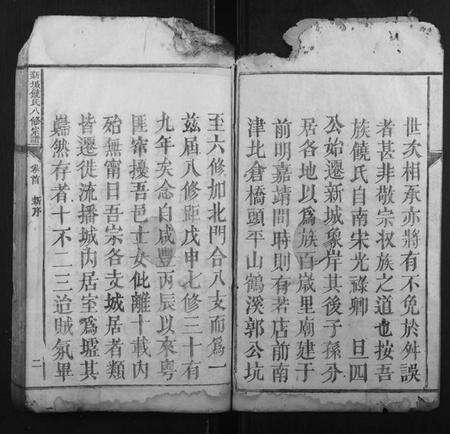 世矣相承亦將有不免於舛誤
者甚非敬宗收族之道也按吾
族饒氏自南宋光祿卿 旦四
公始遷新城象岸其後子孫分
居各地以爲族百歲里廟建于
前明嘉靖間時則有若店前南
津北倉橋頭平山鶴溪郭公坑
至六修加北門合八支而爲一
茲屆八修距戊申七修三十有
九年矣念自咸豐丙辰以來粵
匪窜擾吾邑士女仳離十載內
殆無甯目吾宗各支城居者類
皆遷徙流播城內居室爲墟其
巋然存者十不二三迨賊氛畢
新城饒氏八修宗譜
卷首 新序
二